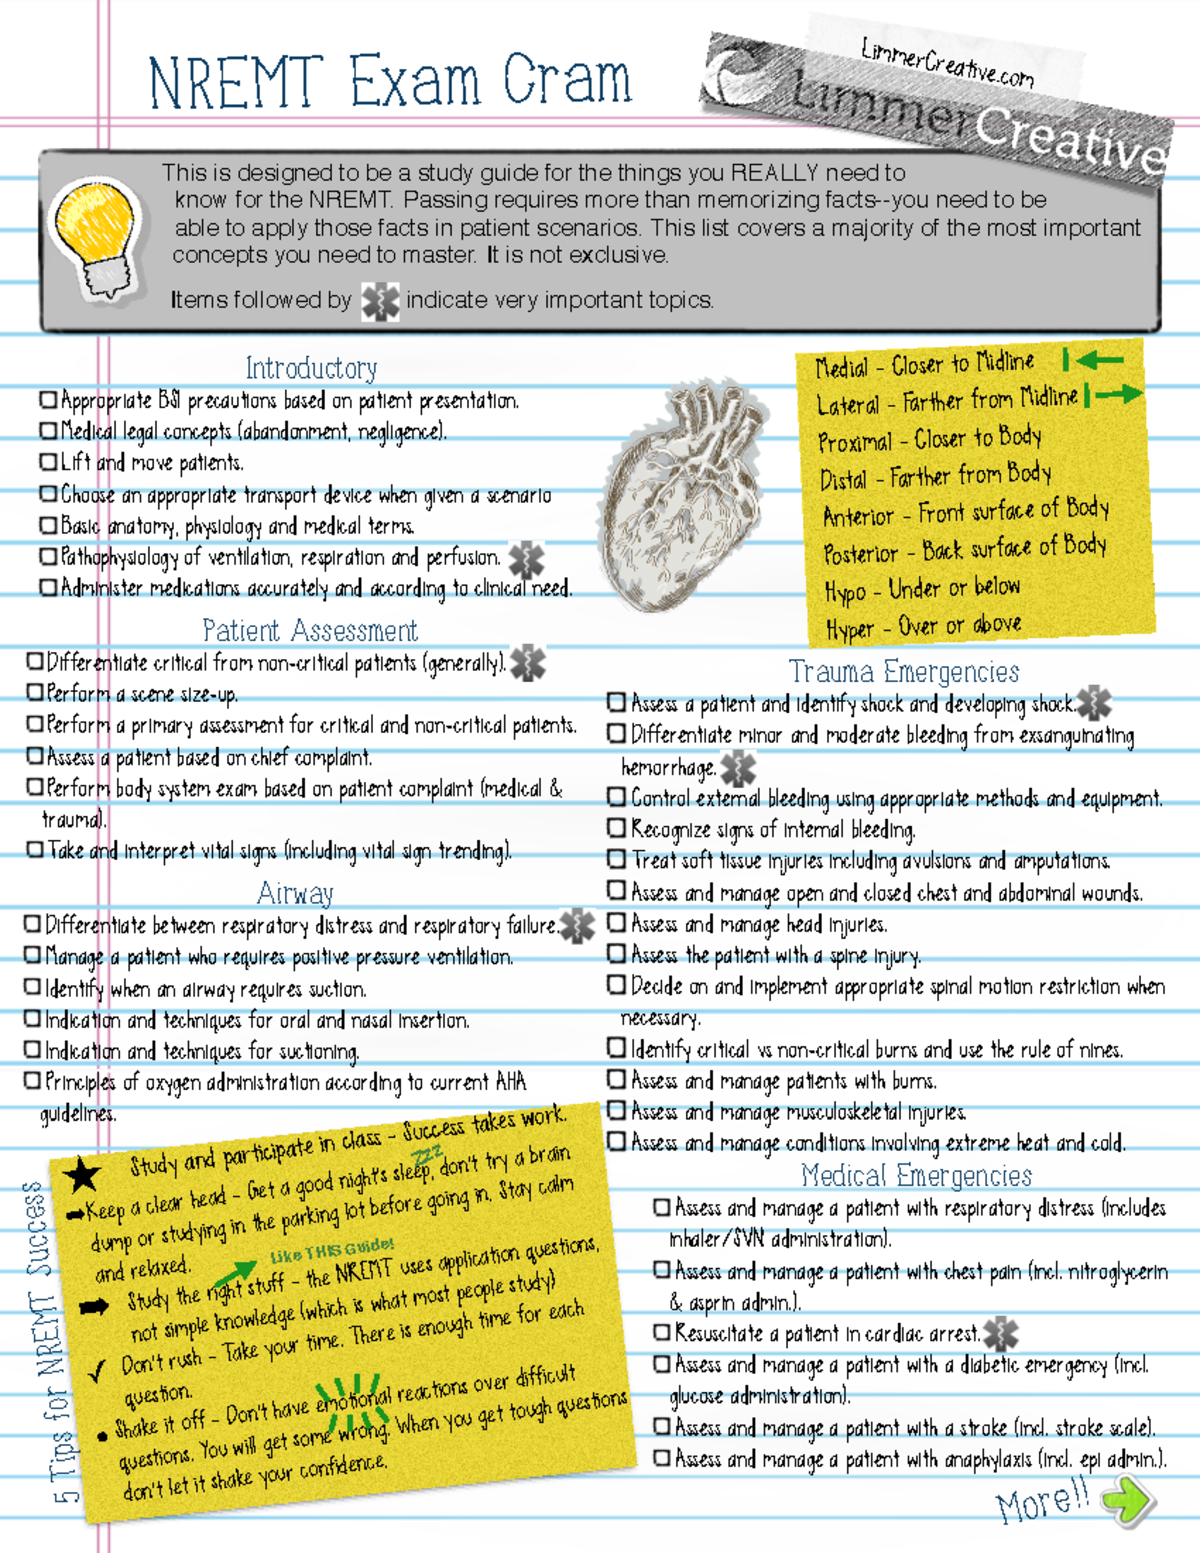 NREMT Exam Cram
LimmerCreative.com
LimmerCreative
This is designed to be a study guide for the things you REALLY need to
know for the NREMT. Passing requires more than memorizing facts--you need to be
able to apply those facts in patient scenarios. This list covers a majority of the most important
concepts you need to master. It is not exclusive.
Items followed by indicate very important topics.
Introductory
Appropriate BSI precautions based on patient presentation.
Medical legal concepts (abandonment, negligence).
Lift and move patients.
Choose an appropriate transport device when given a scenario
Basic anatomy, physiology and medical terms.
Pathophysiology of ventilation, respiration and perfusion.
Administer medications accurately and according to clinical need.
Patient Assessment
Differentiate critical from non-critical patients (generally).
Perform a scene size-up.
Perform a primary assessment for critical and non-critical patients.
Assess a patient based on chief complaint.
Perform body system exam based on patient complaint (medical &
trauma).
Take and interpret vital signs (including vital sign trending).
Airway
Differentiate between respiratory distress and respiratory failure.
Manage a patient who requires positive pressure ventilation.
Identify when an airway requires suction.
Indication and techniques for oral and nasal insertion.
Indication and techniques for suctioning.
Principles of oxygen administration according to current AHA
guidelines.
5 Tips for NREMT Success
Study and participate in class - Success takes work.
zzz
Keep a clear head - Get a good night's sleep, don't try a brain
dump or studying in the parking lot before going in. Stay calm
and relaxed.
Like THIS Guide!
Study the right stuff - the NREMT uses application questions,
not simple knowledge (which is what most people study)
Don't rush - Take your time. There is enough time for each
question.
Shake it off - Don't have emotional reactions over difficult
questions. You will get some wrong. When you get tough questions
don't let it shake your confidence.
Medial - Closer to Midline
Lateral - Farther from Midline
Proximal - Closer to Body
Distal - Farther from Body
Anterior - Front surface of Body
Posterior - Back surface of Body
Hypo - Under or below
Hyper - Over or above
Trauma Emergencies
Assess a patient and identify shock and developing shock.
Differentiate minor and moderate bleeding from exsanguinating
hemorrhage.
Control external bleeding using appropriate methods and equipment.
Recognize signs of internal bleeding.
Treat soft tissue injuries including avulsions and amputations.
Assess and manage open and closed chest and abdominal wounds.
Assess and manage head injuries.
Assess the patient with a spine injury.
Decide on and implement appropriate spinal motion restriction when
necessary.
Identify critical vs non-critical burns and use the rule of nines.
Assess and manage patients with burns.
Assess and manage musculoskeletal injuries.
Assess and manage conditions involving extreme heat and cold.
Medical Emergencies
Assess and manage a patient with respiratory distress (includes
inhaler/SVN administration).
Assess and manage a patient with chest pain (incl. nitroglycerin
& asprin admin.).
Resuscitate a patient in cardiac arrest.
Assess and manage a patient with a diabetic emergency (incl.
glucose administration).
Assess and manage a patient with a stroke (incl. stroke scale).
Assess and manage a patient with anaphylaxis (incl. epi admin.).
More!!